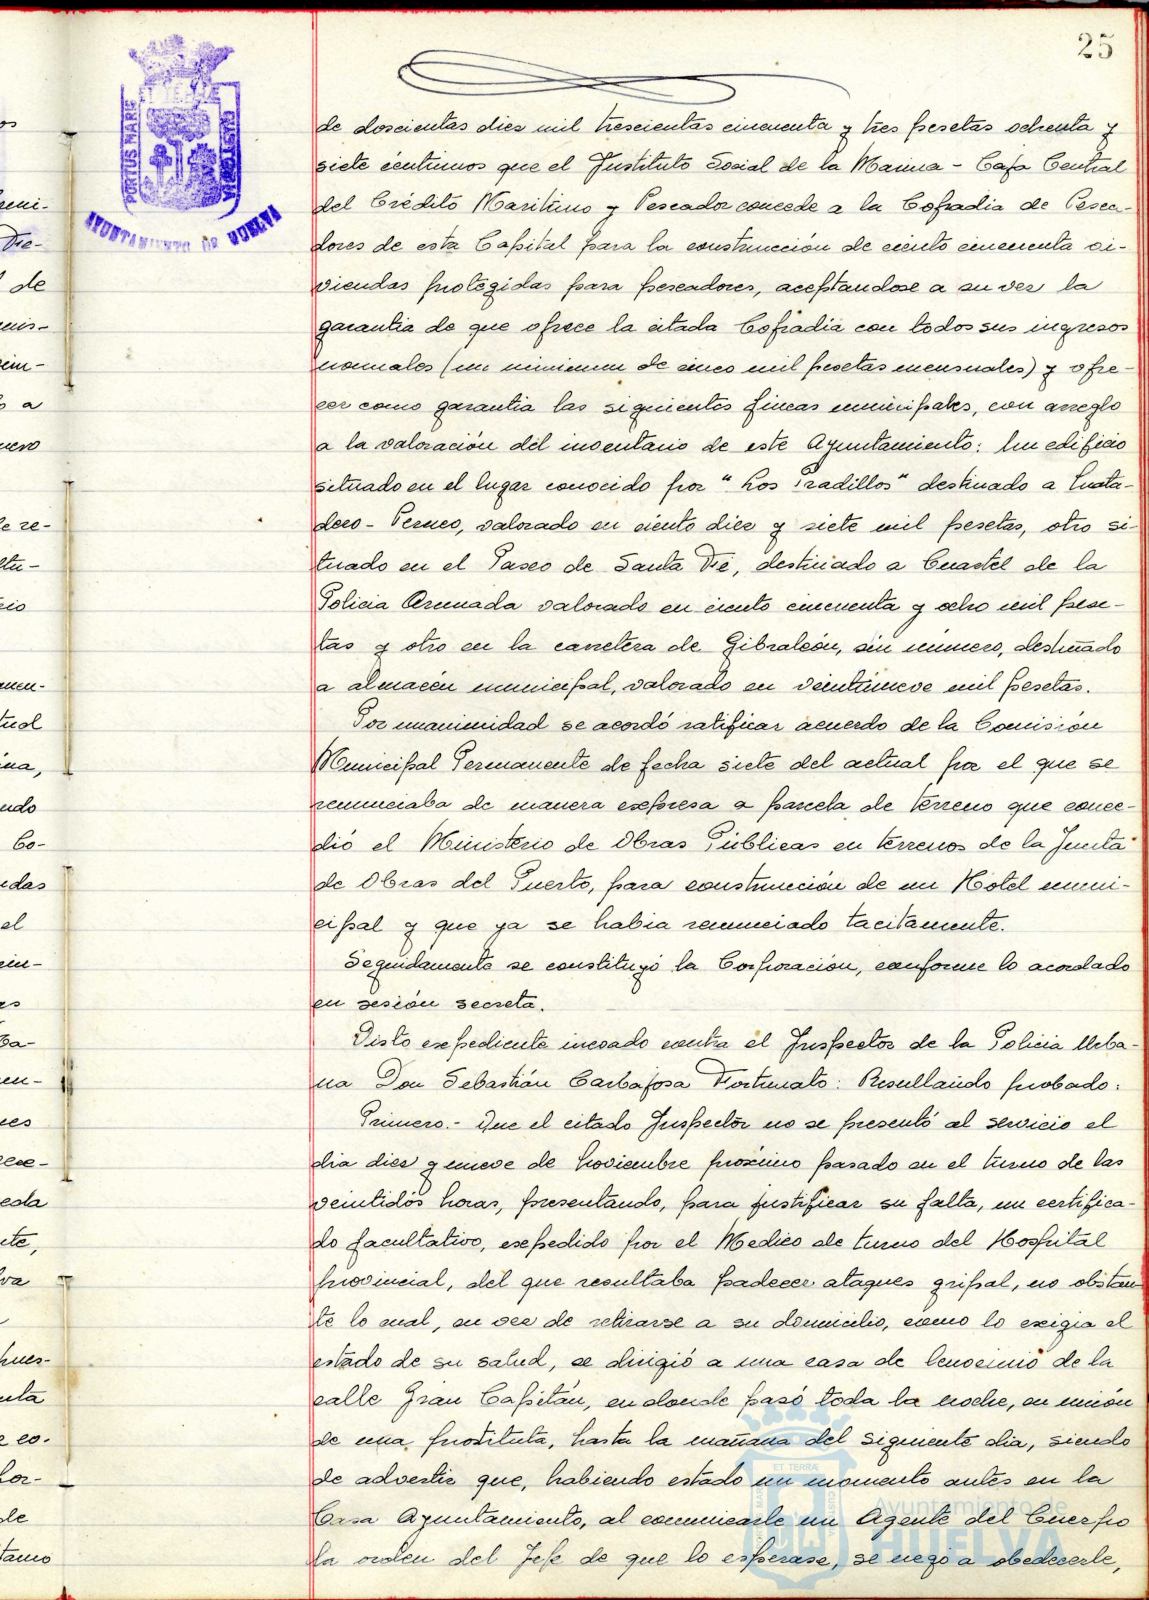 25
PORTUS MARIS
ET TERRE
CUSTODIA
AYUNTAMIENTO DE HUELVA
de doscientas diez mil trescientas cincuenta y tres pesetas ochenta y
siete centimos que el Instituto Social de la Marina - Caja Central
del Crédito Maritimo y Pescador concede a la Cofradia de Pesca-
dores de esta Capital para la construcción de ciento cincuenta vi-
viendas protegidas para pescadores, aceptandose a su vez la
garantia de que ofrece la citada Cofradia con todos sus ingresos
normales (un minimum de cinco mil pesetas mensuales) y ofre-
cer como garantia las siguientes fincas municipales, con arreglo
a la valoración del inventario de este Ayuntamiento: Un edificio
situado en el lugar conocido por "Los Pradillos" destinado a Mata-
dero-Perneo, valorado en ciento diez y siete mil pesetas, otro si-
tuado en el Paseo de Santa Fé, destinado a Cuartel de la
Policia Armada valorado en ciento cincuenta y ocho mil pese-
tas y otro en la carretera de Gibraleón, sin número, destinado
a almacén municipal, valorado en veintinueve mil pesetas.
Por unanimidad se acordó ratificar acuerdo de la Comisión
Municipal Permanente de fecha siete del actual por el que se
renunciaba de manera expresa a parcela de terreno que conce-
dió el Ministerio de Obras Públicas en terrenos de la Junta
de Obras del Puerto, para construcción de un Hotel muni-
cipal y que ya se habia renunciado tacitamente.
Seguidamente se constituyó la Corporación, conforme lo acordado
en sesión secreta.
Visto expediente incoado contra el Inspector de la Policia Urba-
na Don Sebastián Carbajosa Fortunato: Resultando probado:
Primero.- Que el citado Inspector no se presentó al servicio el
dia diez y nueve de Noviembre próximo pasado en el turno de las
veintidós horas, presentando, para justificar su falta, un certifica-
do facultativo, expedido por el Medico de turno del Hospital
Provincial, del que resultaba padecer ataques gripal, no obstan-
te lo cual, en vez de retirarse a su domicilio, como lo exigia el
estado de su salud, se dirigió a una casa de lenocinio de la
calle Gran Capitán, en donde pasó toda la noche, en unión
de una prostituta, hasta la mañana del siguiente dia, siendo
de advertir que, habiendo estado un momento antes en la
Casa Ayuntamiento, al comunicarle un Agente del Cuerpo
la orden del Jefe de que lo esperase, se negó a obedecerle,
Ayuntamiento de
HUELVA